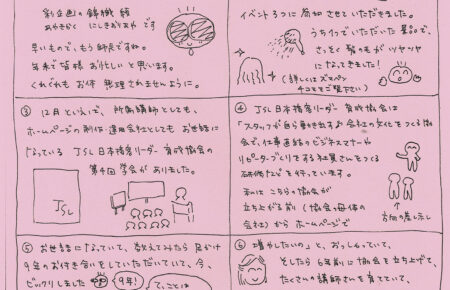 彩企画の錦織 綾
にしきおりあや です
早いもので、もう師走ですね。
年末で皆様 お忙しいと思います。
くれぐれもお体 無理されませんように。
イベント3つに 参加 させていただきました。
うちの
いただいた 景品で、
さっそく 髪の毛が ツヤツヤ
になってきました!
(詳しくは
チコモをご覧下さい)
③ 12月といえば、所属講師としても、
ホームページの制作・運用会社としても お世話に
なっている JSL日本接客リーダー育成協会の
第4回 学会が ありました。
JSL
④ JSL日本接客リーダー育成協会は
「スタッフが自ら動き出す」会社の文化をつくる協
会で、仕事直結のビジネスマナーや
リピーターづくりできる社員さんをつくる
研修などを 行っています。
私は こちらの協会が
立ち上がる前(協会の母体の
会社)から ホームページで
方向の差し示し
⑤ お世話になっていて、数えてみたら 足かけ
9年のお付き合いをしていただいていて、今、
ビックリしました
9年!
てことは
⑥ 増やしたいの」と、おっしゃっていて、
そしたら 6年前に 協会を立ち上げて、
たくさんの講師さんを育てていて、